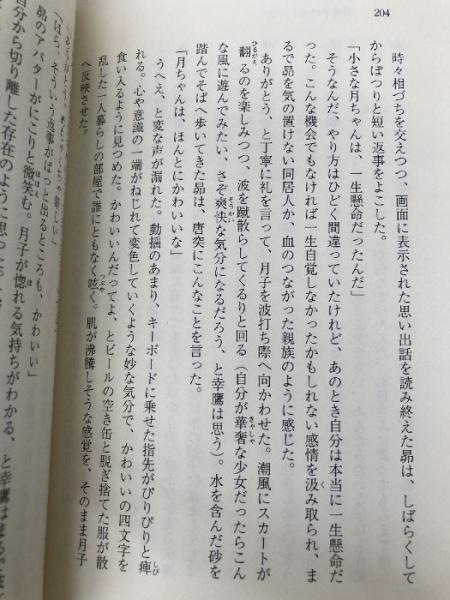 204
時々相づちを交えつつ、画面に表示された思い出話を読み終えた昴は、しばらくして
からぽつりと短い返事をよこした。
「小さな月ちゃんは、一生懸命だったんだ」
そうなんだ、やり方はひどく間違っていたけれど、あのとき自分は本当に一生懸命だ
った。こんな機会でもなければ一生自覚しなかったかもしれない感情を汲み取られ、ま
るで昴を気の置けない同居人か、血のつながった親族のように感じた。
ありがとう、と丁寧に礼を言って、月子を波打ち際へ向かわせた。潮風にスカートが
翻るのを楽しみつつ、波を蹴散らしてくるりと回る（自分が華奢な少女だったらこん
な風に遊んでみたい、さぞ爽快な気分になるだろう、と幸鷹は思う）。水を含んだ砂を
踏んでそばへ歩いてきた昴は、唐突にこんなことを言った。
「月ちゃんは、ほんとにかわいいな」
うへえ、と変な声が漏れた。動揺のあまり、キーボードに乗せた指先がぴりぴりと痺
れる。心や意識の一端がねじれて変色していくような妙な気分で、かわいいの四文字を
食い入るように見つめた。かわいいんだってよ、とビールの空き缶と脱ぎ捨てた服が散
乱した一人暮らしの部屋で誰にともなく呟く。肌が沸騰しそうな感覚を、そのまま月子
へ反映させた。
「はっ、そういう返事がぱっと出るところも、かわいい」
昴のアバターがにこりと微笑む。月子が惚れる気持ちがわかる、と幸鷹は
自分から切り離した存在のように思った